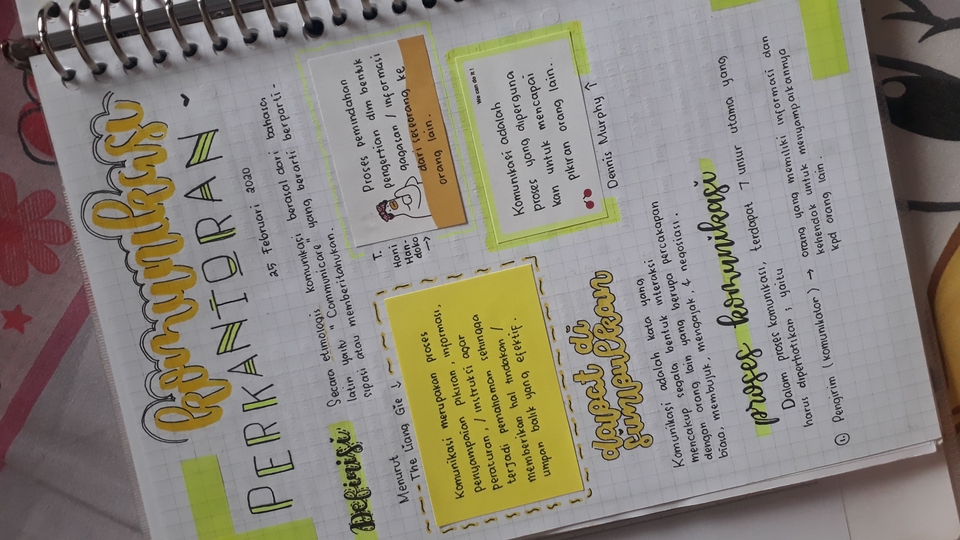 Komunikasi
PERKANTORAN
25 Februari 2020
Definisi
Secara etimologis komunikasi berasal dari bahasa
latin yaitu "Communicare" yang berarti berparti-
sipasi atau memberitahukan.
Menurut
The Liang Gie ↓
Komunikasi merupakan proses
penyampaian pikiran, informasi,
peraturan, / instruksi agar
terjadi pemahaman sehingga
memberikan hal tindakan /
umpan balik yang efektif.
T.
Hani
Han-
doko
→
Proses pemindahan
pengertian dlm bentuk
gagasan / informasi
dari seseorang ke
orang lain.
We can do it!
Komunikasi adalah
proses yang diperguna
kan untuk mencapai
pikiran orang lain.
Dennis Murphy ↑
dapat di
simpulkan
Komunikasi adalah kata yang
mencakup segala bentuk interaksi
dengan orang lain yang berupa percakapan
biasa, membujuk, mengajak, & negosiasi.
proses komunikasi
Dalam proses komunikasi, terdapat 7 unsur utama yang
harus dipertatikan ; yaitu
① Pengirim (komunikator) → orang yang memiliki informasi dan
kehendak untuk menyampaikannya
kpd orang lain.